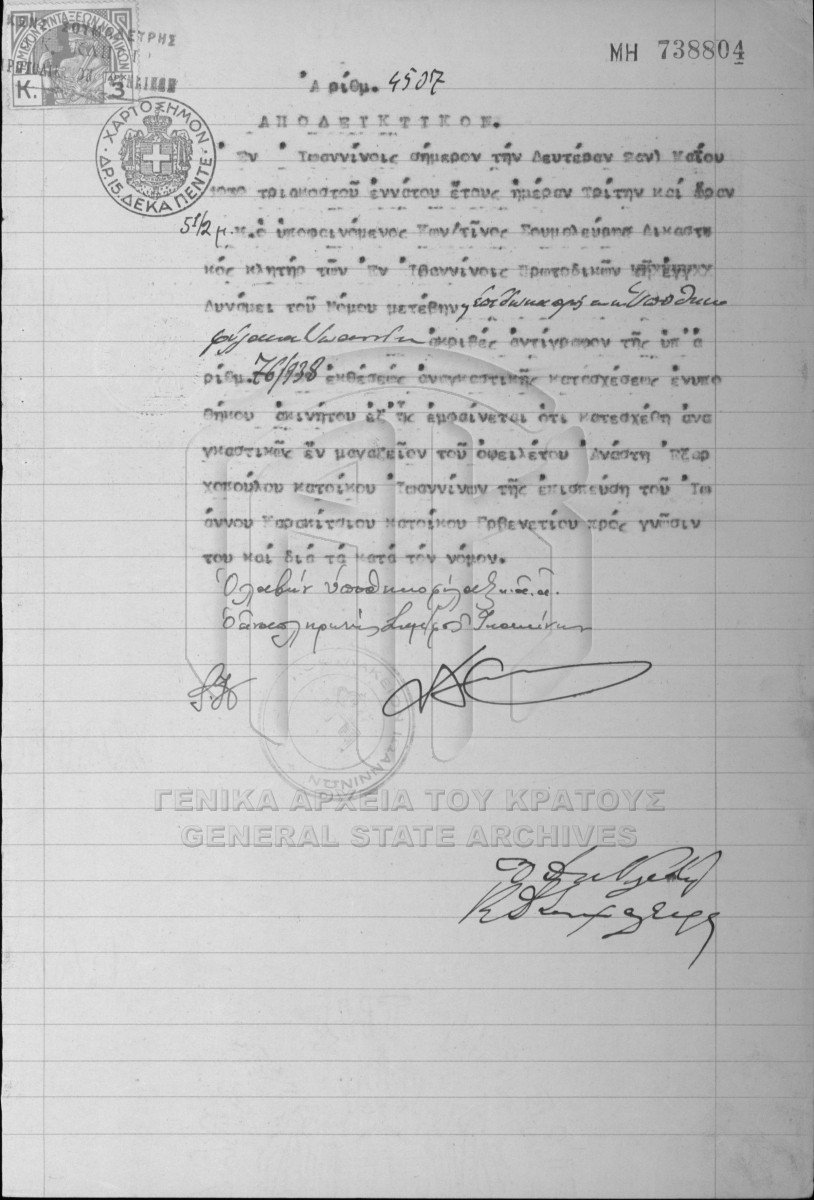 ΜΗ 738804
ΤΑΜΕΙΟΝ ΣΥΝΤΑΞΕΩΝ ΝΟΜΙΚΩΝ
Κ. 3
ΧΑΡΤΟΣΗΜΟΝ
ΔΡ. 15. ΔΕΚΑΠΕΝΤΕ
Ἀριθμ. 4507
ΑΠΟΔΕΙΚΤΙΚΟΝ.
Ἐν Ἰωαννίνοις σήμερον τήν Δευτέραν 2αν) Μαΐου
τριακοστοῦ ἐννάτου ἔτους ἡμέραν Τρίτην καί ὥραν
5 1/2 μ.μ. ὁ ὑποφαινόμενος Κων/τῖνος Σουμαλεύρησ Δικαστι
κός κλητήρ τῶν Ἐν Ἰθαννίνοις Πρωτοδικῶν
Δυνάμει τοῦ Νόμου μετέβην
φύλακα Ἰωαννίνων ἀκριβές ἀντίγραφον τῆς ὑπ' ἀ
ριθμ. 76/938 ἐκθέσεώς ἀναγκαστικῆς κατασχέσεως ἐνυπο
θήκου ἀκινήτου ἐξ ἧς ἐμφαίνεται ὅτι κατεσχέθη ἀνα
γκαστικῶς ἕν μαγαζεῖον τοῦ ὀφειλέτου Ἀνάστη Ἐξαρ
χοπούλου κατοίκου Ἰωαννίνων τῆς ἐπισπεύση τοῦ Ἰω
άννου Καρακίτσιου κατοίκου Γρβενετίου πρός γνῶσιν
του καί διά τά κατά τόν νόμον.
Ὁ λαβών ὑποθηκοφύλαξ κ.ἄ.ἄ.
ΙΩΑΝΝΙΝΩΝ
ΓΕΝΙΚΑ ΑΡΧΕΙΑ ΤΟΥ ΚΡΑΤΟΥΣ
GENERAL STATE ARCHIVES